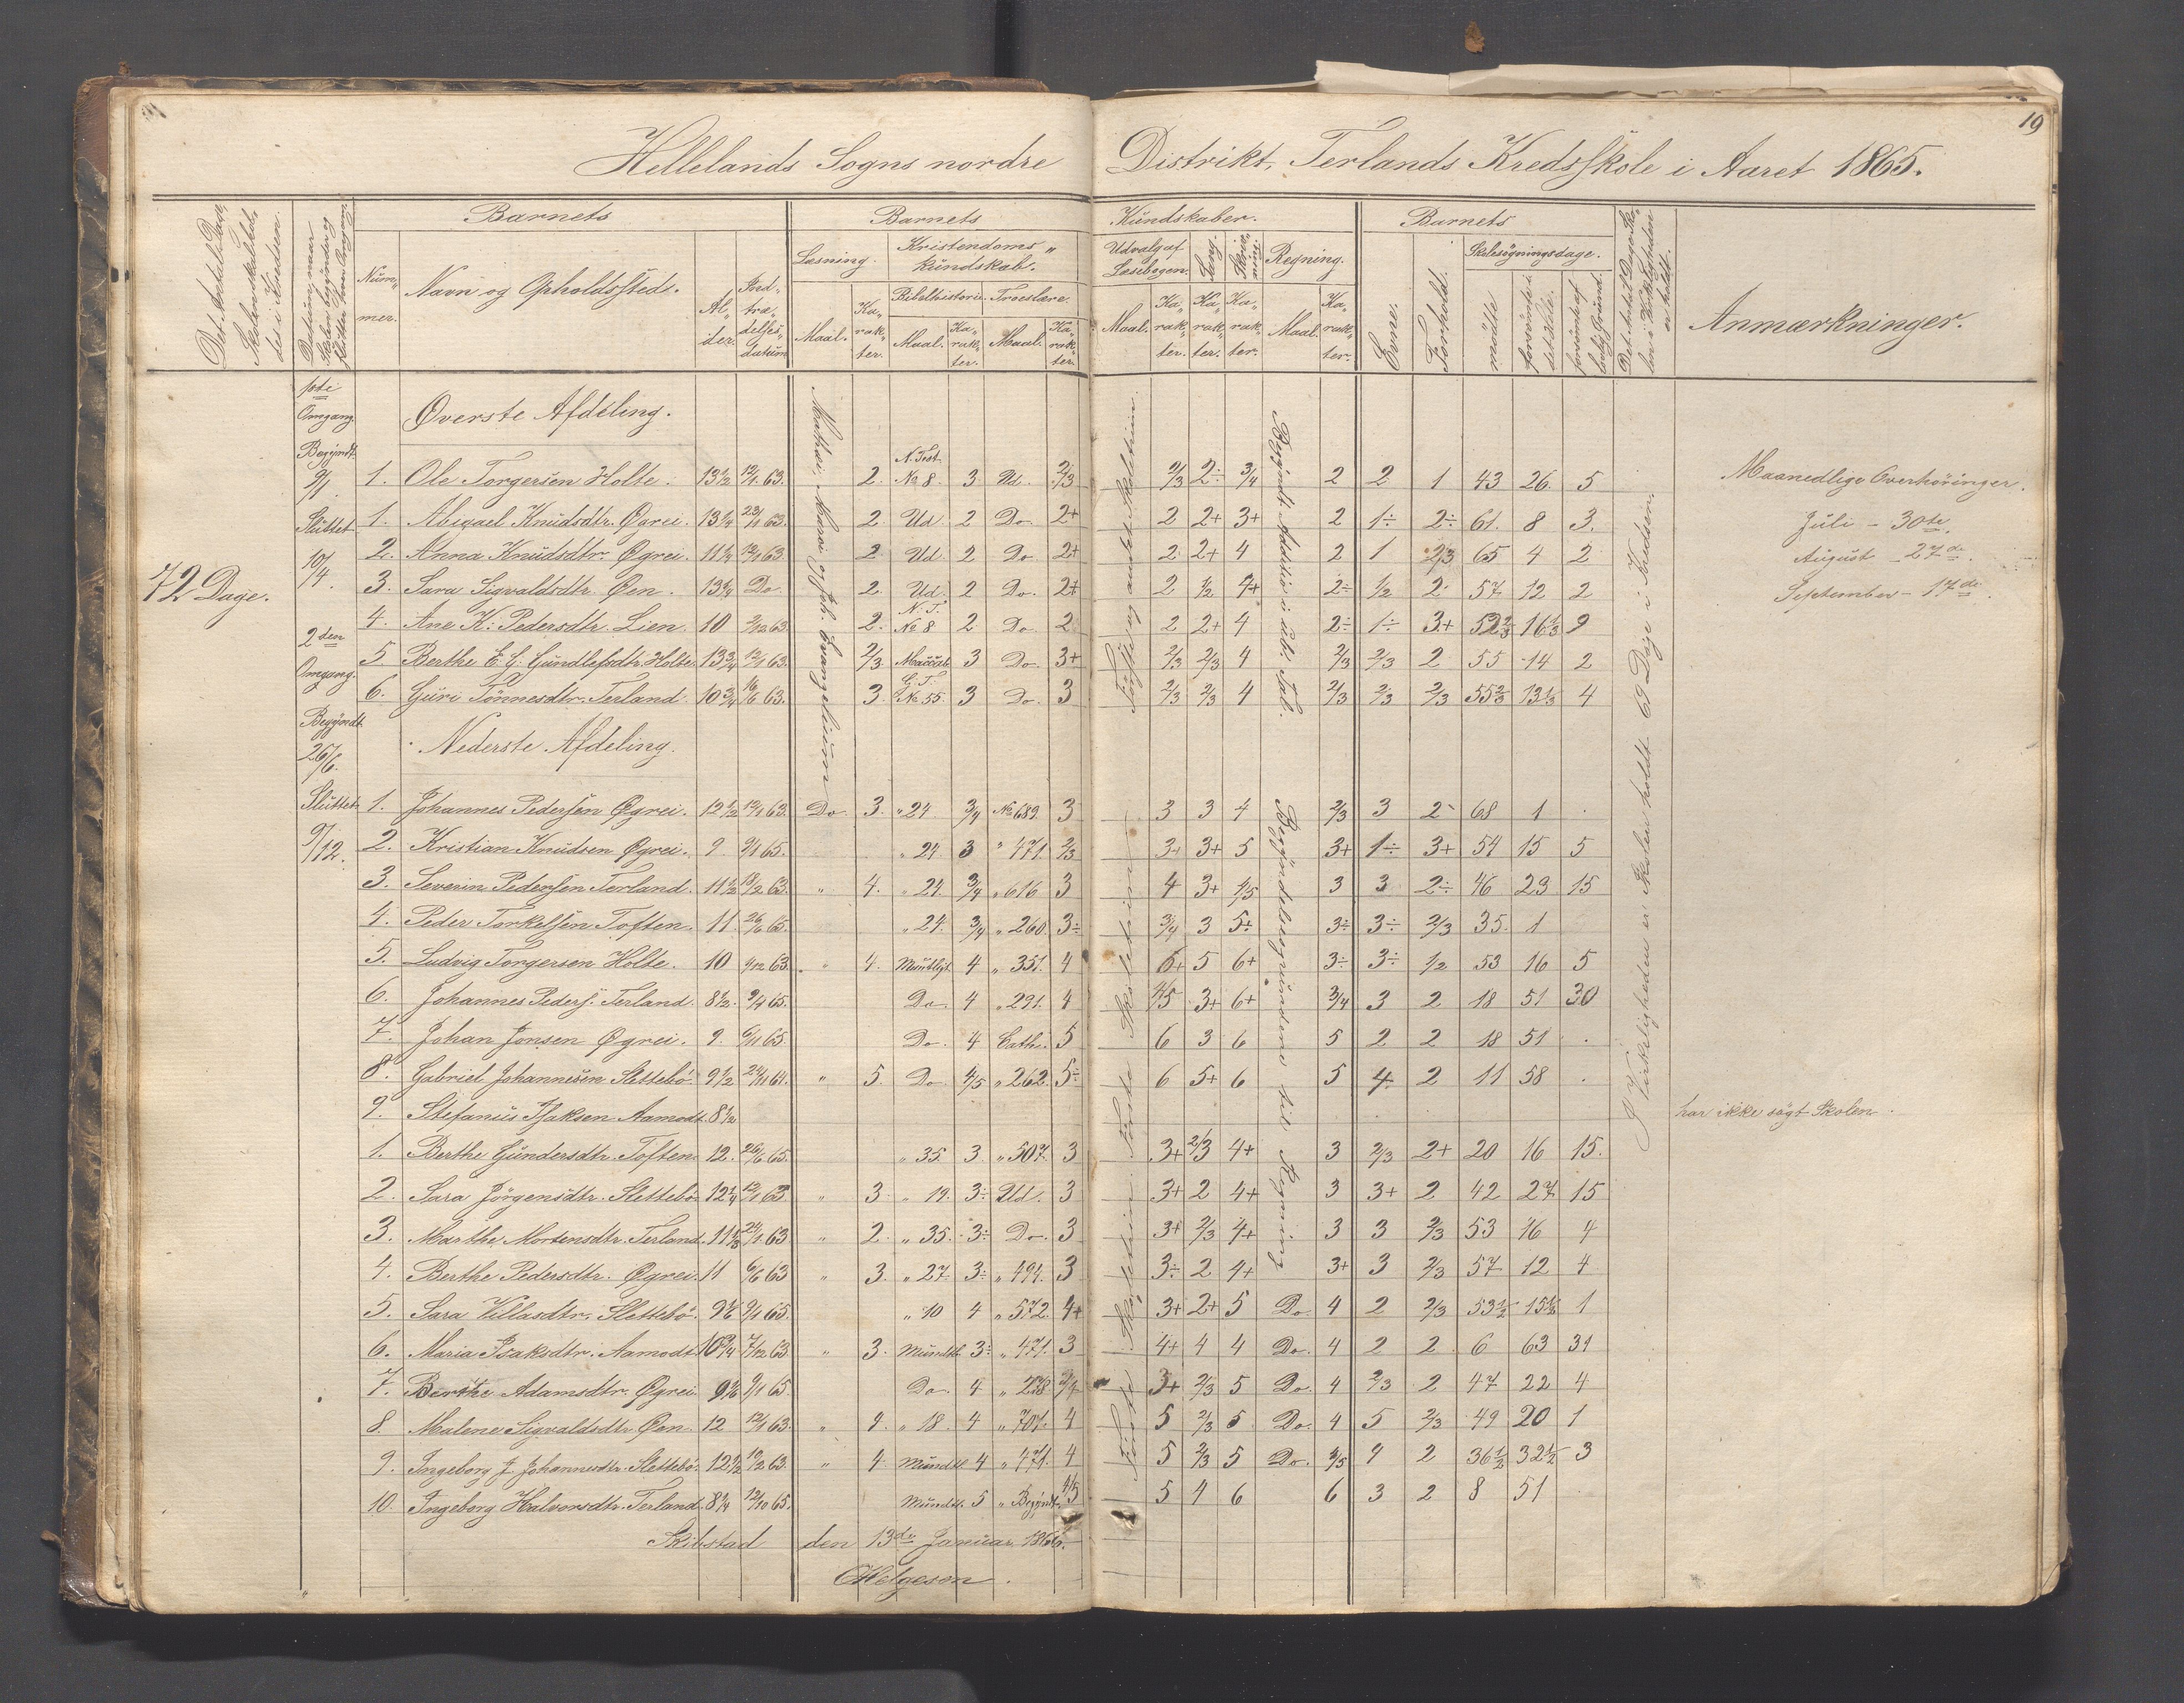 19
Hellelands Sogns nordre Distrikt, Terlands Kredsskole i Aaret 1865.
Det Antal Dage, Skolen skal holdes i Kredsen.
Datum, naar Skolen begynder og slutter hver Omgang.
Barnets
Nummer.
Navn og Opholdssted.
Alder.
Indtrædelsesdatum
Barnets Kundskaber.
Læsning.
Maal. Karakter.
Kristendomskundskab.
Bibelhistorie. Troeslære.
Maal. Karakter. Maal. Karakter.
Udvalg af Læsebogen.
Maal. Karakter.
Sang. Karakter.
Skrivning. Karakter.
Regning.
Maal. Karakter.
Barnets
Evne.
Forhold.
Skolesøgningsdage.
mødte
forsømte i det Hele.
forsømt af lovlig Grund.
Det Antal Dage Skolen i Virkeligheden er holdt.
Anmærkninger.
72 Dage.
1ste Omgang Begyndt 9/1. Sluttet 10/4.
2den Omgang. Begyndt 26/6. Sluttet 9/12.
Mathæi, Marci og Joh. Evangelium
Begyndt Addition i ub. Tal.
Begyndelsesgrundene til Regning
I Virkeligheden er Skolen holdt 69 Dage i Kredsen.
Øverste Afdeling.
1. Ole Torgersen Holte. 13½ 12/1 63. 2. N. Test. No 8. 3 Ud. 2/3 2/3 2÷ 3/4 2 2 1 43 26. 5
1. Abigael Knudsdtr. Øgrei. 13¼ 23/1 63. 2. Ud 2 Do. 2+ 2 2+ 3+ 2 1÷ 2÷ 61. 8 3.
2. Anna Knudsdtr. Øgrei. 11¼ 12/1 63 2 Ud 2 Do 2+ 2 2+ 4 2 1 2/3 65 4 2
3. Sara Sigvaldsdtr. Øen. 13¼ Do 2. Ud. 2 Do. 2+ 2 ½ 4+ 2÷ ½ 2 57 12 2
4. Ane K: Pedersdtr. Lien. 10 2. N. T. No 8 2 Do 2 2 2+ 4 2÷ 1÷ 3+ 52⅔ 16⅓ 9
5. Berthe E. G. Gundlefsdtr. Holte. 13¾ 12/1 63. 2/3 Maccab. 3 Do. 3+ 2/3 2/3 4 2/3 2/3 2 55 14 2
6. Guri Tønnesdtr. Terland. 10¾ 16/6 63. 3. G. T. No. 55. 3 Do. 3 2/3 2/3 4 2/3 2/3 2/3 55⅔ 13⅓ 4
Nederste Afdeling.
1. Johannes Pedersen Øgrei. 12½ 12/1 63. Do 3. " 24 3/4 No 689. 3 3 3 4 2/3 3 2 68 1
2. Kristian Knudsen Øgrei. 9 9/1 65. " 24. 3 " 471. 2/3 3+ 3+ 5 3+ 1÷ 3+ 54 15 5
3. Severin Pedersen Terland. 11½ 18/2 63. " 4. " 24. 3/4 " 616 3 4 3+ 4/5 3 3 2÷ 46 23 15
4. Peder Torkelsen Toften. 11. 26/6 65. " 24. 3/4 " 260. 3÷ 3/4 3 5+ 3÷ 3÷ 2/3 35. 1
5. Ludvig Torgersen Holte. 10 9/12 63. " 4. Mundtligt 4 " 351. 4 6+ 5 6+ 3÷ 3÷ ½ 53 16 5
6. Johannes Peders. Terland. 8½. 9/4 65. Do 4 " 291. 4 4/5 3+ 6+ 3/4 3 2 18 51 30
7. Johan Jonsen Øgrei. 9. 6/11 65. Do. 4 Cath. 5 6 3 6 5 2 2 18 51
8. Gabriel Johannesen Slettebø. 9½ 24/11 64. " 5. Do 4/5 " 262. 5÷ 6 5+ 6 5 4 2 11 58
9. Stefanus Isaksen Aamodt. 8½ har ikke søgt Skolen.
1. Berthe Gundersdtr. Toften. 12. 26/6 65. " 35. 3. " 507. 3 3+ 2/3 4+ 3 2/3 2+ 20 16 15.
2. Sara Jørgensdtr. Slettebø 12¼ 12/1 63. " 3. " 19. 3÷ Ud. 3 3+ 2 4+ 3 3+ 2 42 27 15
3. Marthe Mortensdtr. Terland. 11⅓ 24/1 63 " 2. " 35. 3÷ Do. 3 3+ 2/3 4+ 3 3 2/3 53 16 4
4. Berthe Pedersdtr. Øgrei. 11 6/6 63 " 3. " 27. 3÷ " 494. 3 3÷ 2 4+ 3+ 3 2/3 57 12 4
5. Sara Villasdtr. Slettebø. 9/1 65. " 10 4 " 572. 4+ 3+ 2+ 5 Do. 4 2 2/3 53½ 15½ 1
6. Maria Isaksdtr. Aamodt. 10¾ 7/12 63. " 3. Mundtl. 3÷ " 471. 3 4+ 4 4 Do. 4 2 2 6 63 31
7. Berthe Adamsdtr. Øgrei. 9/1 65. Do. 4 " 278. 3/4 3+ 2/3 5 Do. 4 2/3 2 47 22 4
8. Malene Sigvaldsdtr. Øen. 12 12/1 63. " 4. " 18. 4 " 707. 4 5 2/3 5 Do. 4 5 2/3 49 20 1
9. Ingeborg J. Johannesdtr. Slettebø. 12½ 19/2 63. " 4. Mundtl. 4 " 471. 4 5 2/3 5 Do. 3/5 4 2 36½ 32½ 3
10. Ingeborg Halvorsdtr. Terland. 8¼ 12/10 65. Mundtl. 5 " Begyndt. 4/5 5 4 6 6 3 2 8 51
Maanedlige Overhøringer.
Juli - 30te.
August - 27de.
September - 17de.
Skibstad den 13de Januar 1866.
CHelgesen.